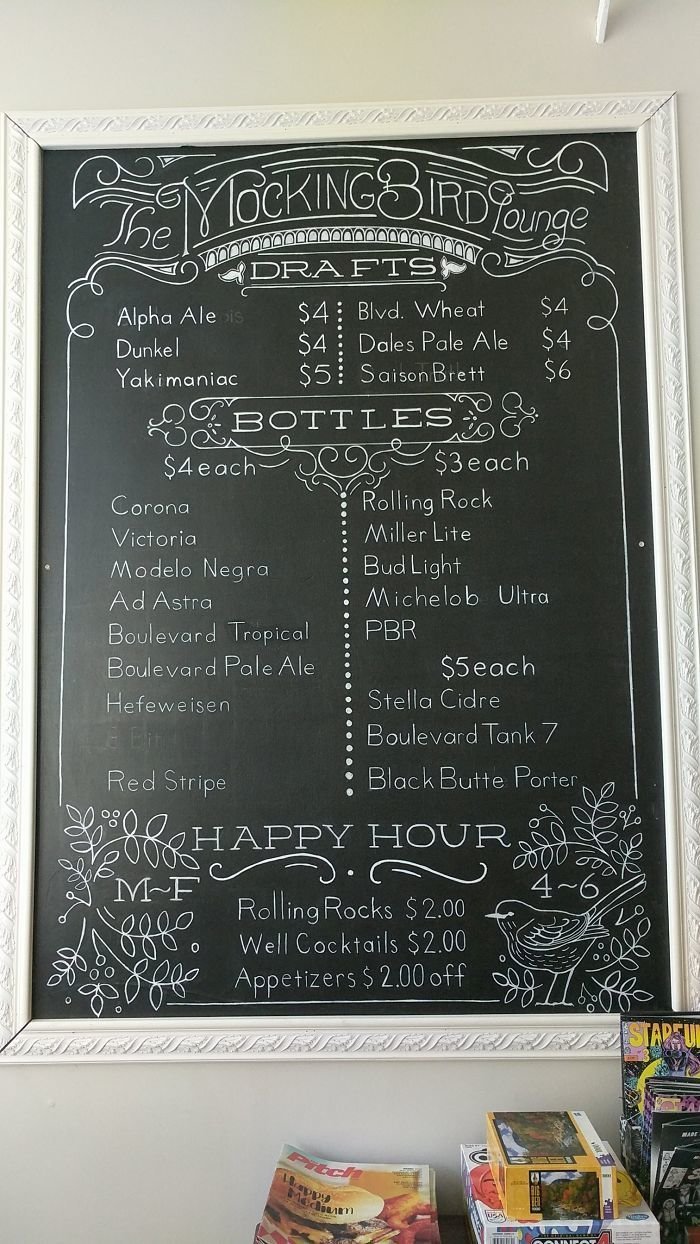 The MockingBird Lounge
DRAFTS
Alpha Ale $4
Dunkel $4
Yakimaniac $5
Blvd. Wheat $4
Dales Pale Ale $4
Saison Brett $6
BOTTLES
$4 each
Corona
Victoria
Modelo Negra
Ad Astra
Boulevard Tropical
Boulevard Pale Ale
Hefeweisen
Red Stripe
$3 each
Rolling Rock
Miller Lite
Bud Light
Michelob Ultra
PBR
$5 each
Stella Cidre
Boulevard Tank 7
Black Butte Porter
HAPPY HOUR
M~F 4~6
Rolling Rocks $2.00
Well Cocktails $2.00
Appetizers $2.00 off
Pitch
Happy
Medium
CONNECT 4
MADE